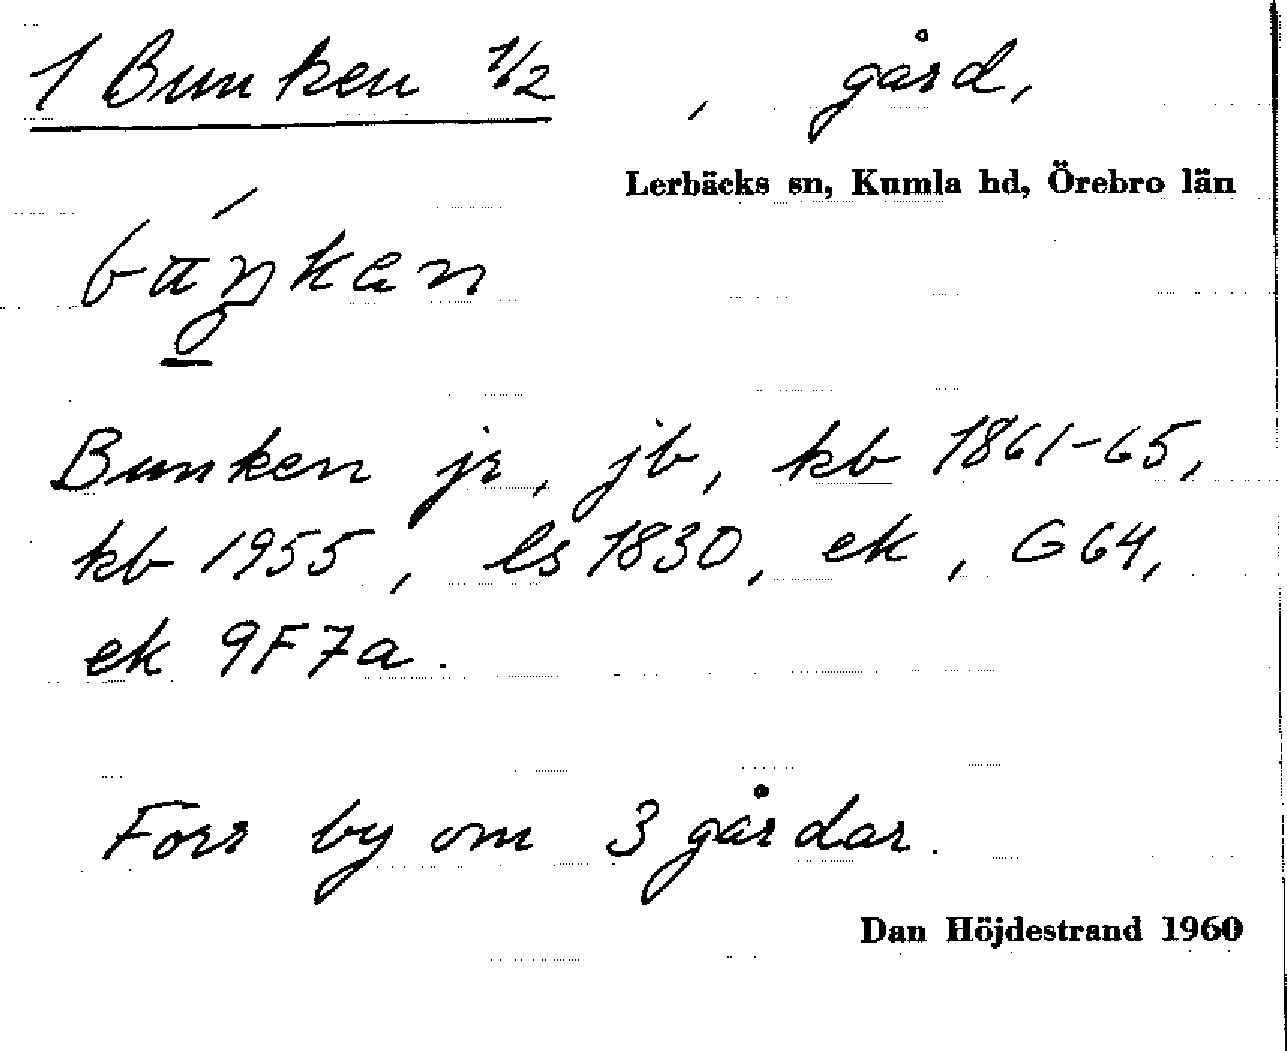 1 Bunken 1/2, gård,
Lerbäcks sn, Kumla hd, Örebro län
Bunken jr, jb, kb 1861-65,
kb 1955, ls 1830, ek, G64,
ek 9F7a.
Förr by om 3 gårdar.
Dan Höjdestrand 1960